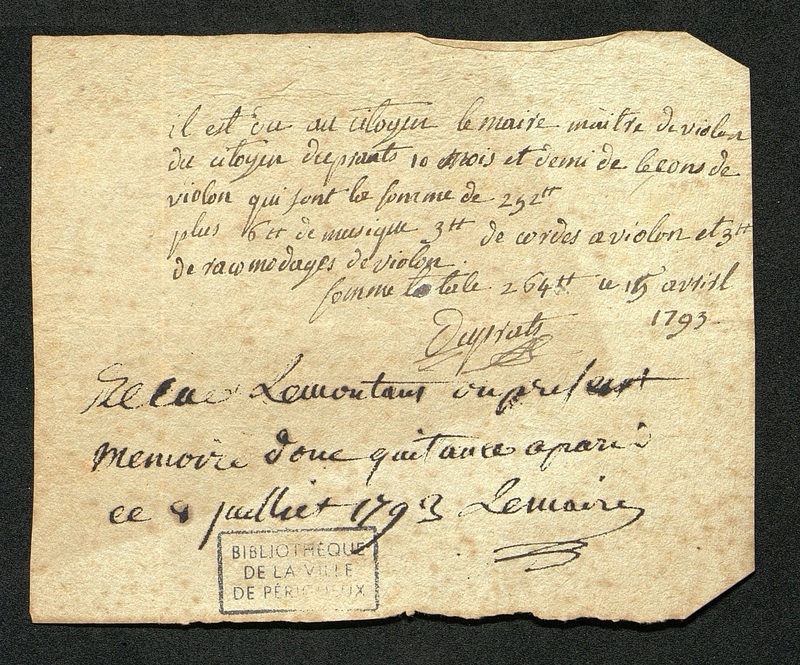 il est du au citoyen lemaire maitre de violon
du citoyen duprats 10 mois et demi de leçons de
violon qui font la somme de 252tt
plus 6tt de musique 3tt de cordes a violon et 3tt
de racomodages de violon.
somme totale 264tt ce 15 avril
1793
Duprats
Recue Lemontans du present
memoire donc quitance a pari
ce 8 juilliet 1793 Lemaire
BIBLIOTHÈQUE
DE LA VILLE
DE PÉRIGUEUX